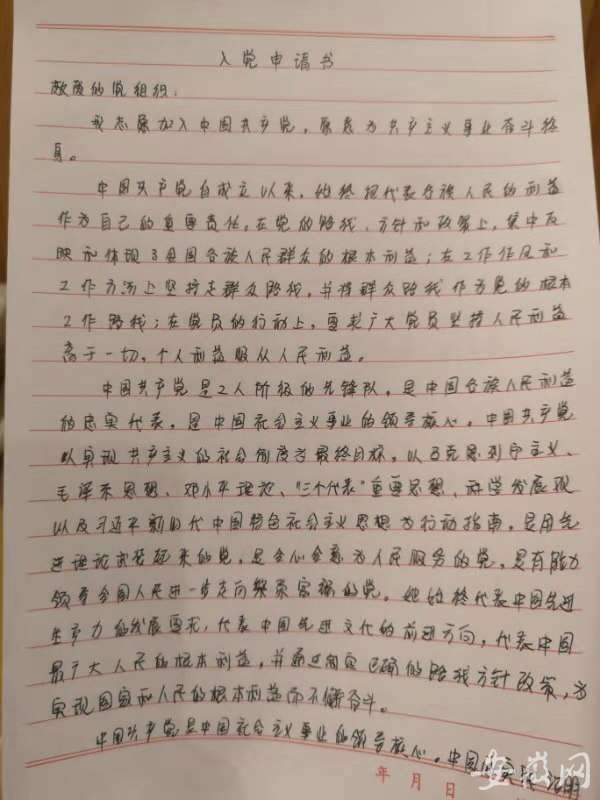 入党申请书
敬爱的党组织：
我志愿加入中国共产党，愿意为共产主义事业奋斗终
身。
中国共产党自成立以来，始终把代表各族人民的利益
作为自己的重要责任。在党的路线、方针和政策上，集中反
映和体现了全国各族人民群众的根本利益；在工作作风和
工作方法上坚持走群众路线，并将群众路线作为党的根本
工作路线；在党员的行动上，要求广大党员坚持人民利益
高于一切，个人利益服从人民利益。
中国共产党是工人阶级的先锋队，是中国各族人民利益
的忠实代表，是中国社会主义事业的领导核心。中国共产党
以实现共产主义的社会制度为最终目标，以马克思列宁主义、
毛泽东思想、邓小平理论、“三个代表”重要思想、科学发展观
以及习近平新时代中国特色社会主义思想为行动指南，是用先
进理论武装起来的党，是全心全意为人民服务的党，是有能力
领导全国人民进一步走向繁荣富强的党。她始终代表中国先进
生产力的发展要求，代表中国先进文化的前进方向，代表中国
最广大人民的根本利益，并通过制定正确的路线方针政策，为
实现国家和人民的根本利益而不懈奋斗。
中国共产党是中国社会主义事业的领导核心。中国的
年 月 日
安徽网